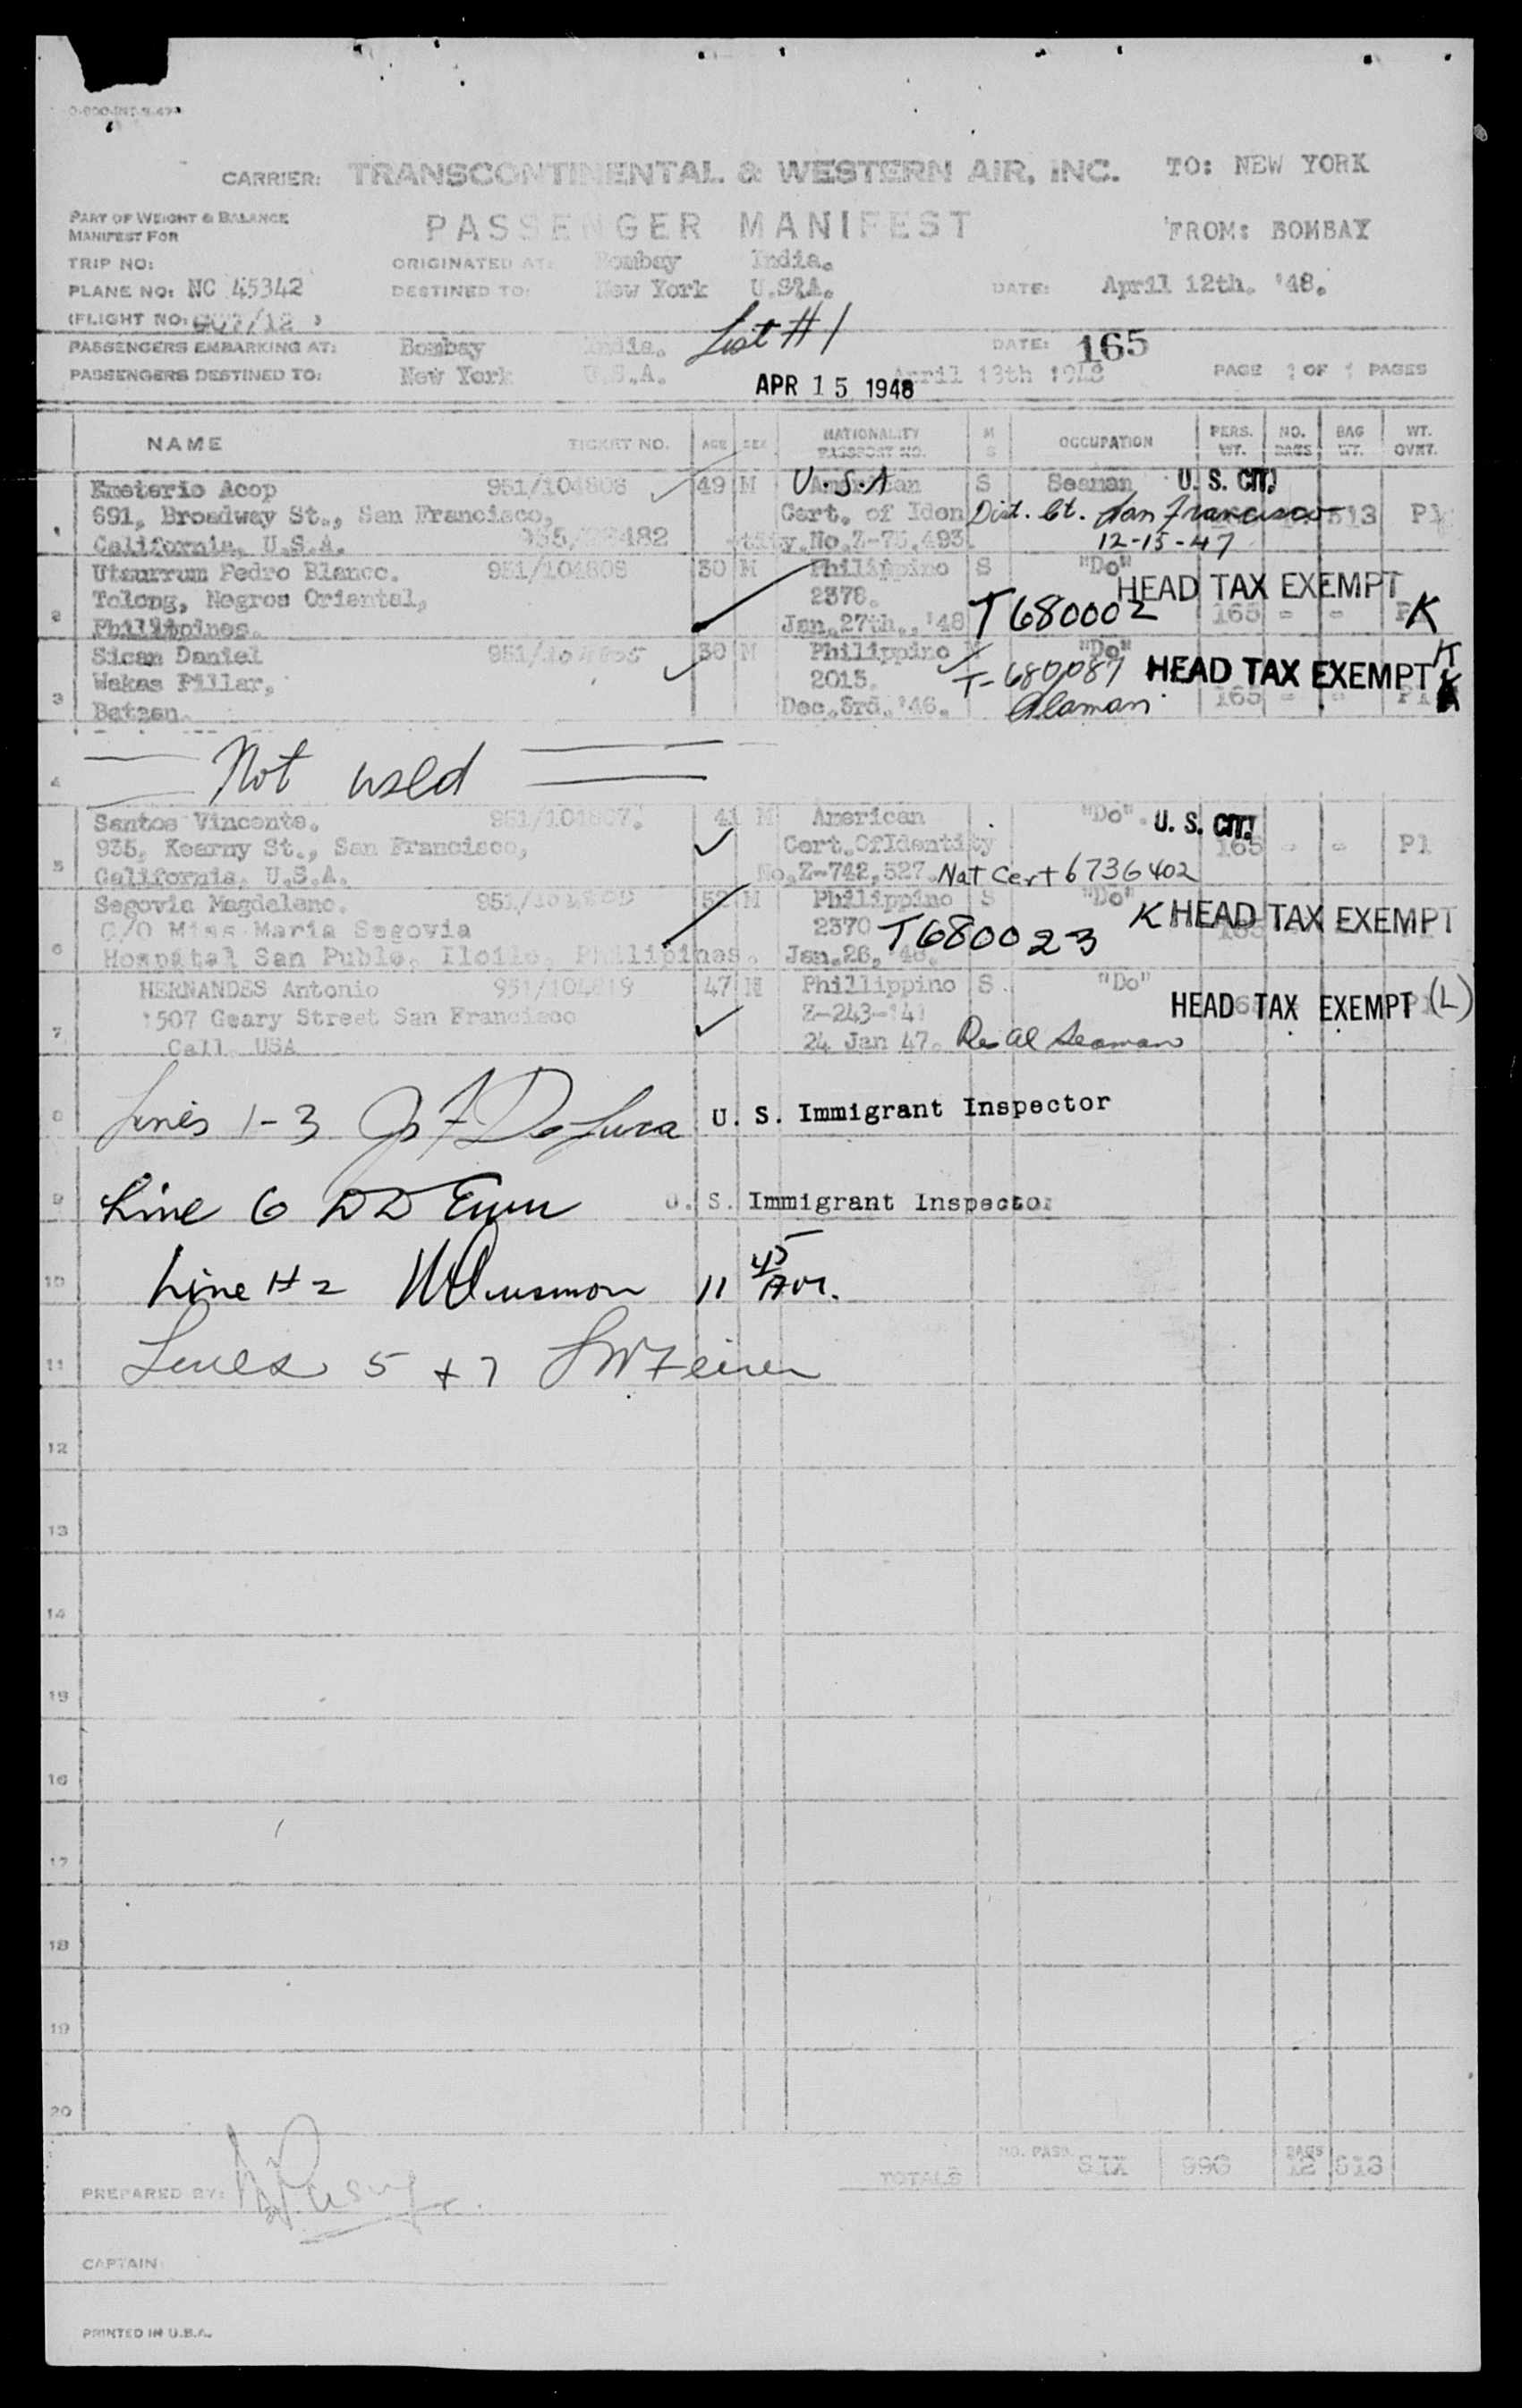 CARRIER: TRANSCONTINENTAL & WESTERN AIR, INC. TO: NEW YORK
PART OF WEIGHT & BALANCE
MANIFEST FOR
PASSENGER MANIFEST FROM: BOMBAY
TRIP NO: ORIGINATED AT: Bombay India.
PLANE NO: NC 45342 DESTINED TO: New York U.S.A. DATE: April 12th. '48.
(FLIGHT NO: /12 )
List #1
PASSENGERS EMBARKING AT: Bombay India. DATE: 165
PASSENGERS DESTINED TO: New York U.S.A. April 13th 1948 PAGE 1 OF 1 PAGES
APR 15 1948
NAME TICKET NO. AGE SEX NATIONALITY PASSPORT NO. M S OCCUPATION PERS. WT. NO. BAGS BAG WT. WT. OVRT.
Emeterio Acop 951/104806 49 M American U.S.A S Seaman U. S. CIT.
1 691, Broadway St., San Francisco, Cert. of Iden Dist. Ct. San Francisco 513 P1
California, U.S.A. tity.No.Z-75,493. 12-15-47
Utsurrum Pedro Blanco. 951/104808 30 M Philippino S "Do" HEAD TAX EXEMPT
2 Tolong, Negros Oriental, 2378. T680002 165 - - K
Philippines. Jan.27th.,'48
Sican Daniel 30 M Philippino "Do"
Wakas Pillar, 2015. T-680087 HEAD TAX EXEMPT K
3 Bataan. Dec.3rd.'46. 165 - - P1
4 Not used
Santos Vincente. 951/104807. 41 M American "Do". U. S. CIT.
5 935, Kearny St., San Francisco, Cert.OfIdentity 165 - - P1
California, U.S.A. No.Z-742,527. Nat Cert 6736402
Segovia Magdaleno. 52 M Philippino S "Do" K HEAD TAX EXEMPT
6 C/O Miss Maria Segovia 2370 T680023
Hospital San Publo, Iloilo, Phillipines. Jan.26,'48.
HERNANDES Antonio 951/104819 47 M Phillippino S. "Do"
1507 Geary Street San Francisco Z-243-'41 HEAD TAX EXEMPT (L)
7 Call USA 24 Jan 47. Res al Seaman
8 Lines 1-3 U. S. Immigrant Inspector
9 Line 6 U. S. Immigrant Inspector
10 Line #2 11 45 AM.
11 Lines 5 + 7
12
13
14
15
16
17
18
19
20
TOTALS NO. PASS. SIX 996 BAGS 12 513
PREPARED BY:
CAPTAIN:
PRINTED IN U.S.A.